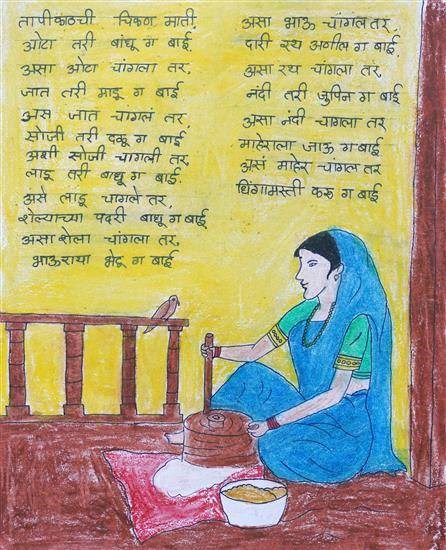 तापीकाठची चिकण माती,
ओटा तरी बांधू ग बाई
असा ओटा चांगला तर,
जात तरी माडू ग बाई
अस जात चांगलं तर,
सोजी तरी दळू ग बाई
अशी सोजी चांगली तर,
लाडू तरी बाधू ग बाई.
असे लाडू चागले तर,
शेल्याच्या पदरी बाधू ग बाई
असा शेला चांगला तर,
भाऊराया भेटू ग बाई
असा भाऊ चांगल तर,
दारी रथ आणील ग बाई
असा रथ चांगला तर,
नंदी तरी जुपिन ग बाई
असा नंदी चागला तर
माहेराला जाऊ ग बाई
असं माहेर चांगल तर
धिंगामस्ती करू ग बाई